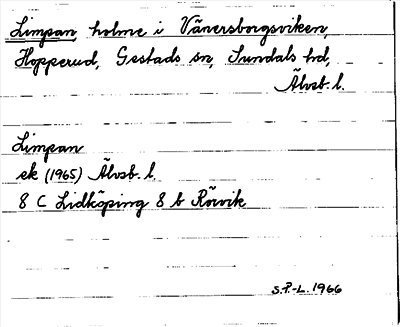 Limpan, holme i Vänersborgsviken,
Hopperud, Gestads sn, Sundals hd,
Älvsb. l.
Limpan
ek (1965) Älvsb. l.
8 C Lidköping 8 b Rörvik
S.P.-L. 1966